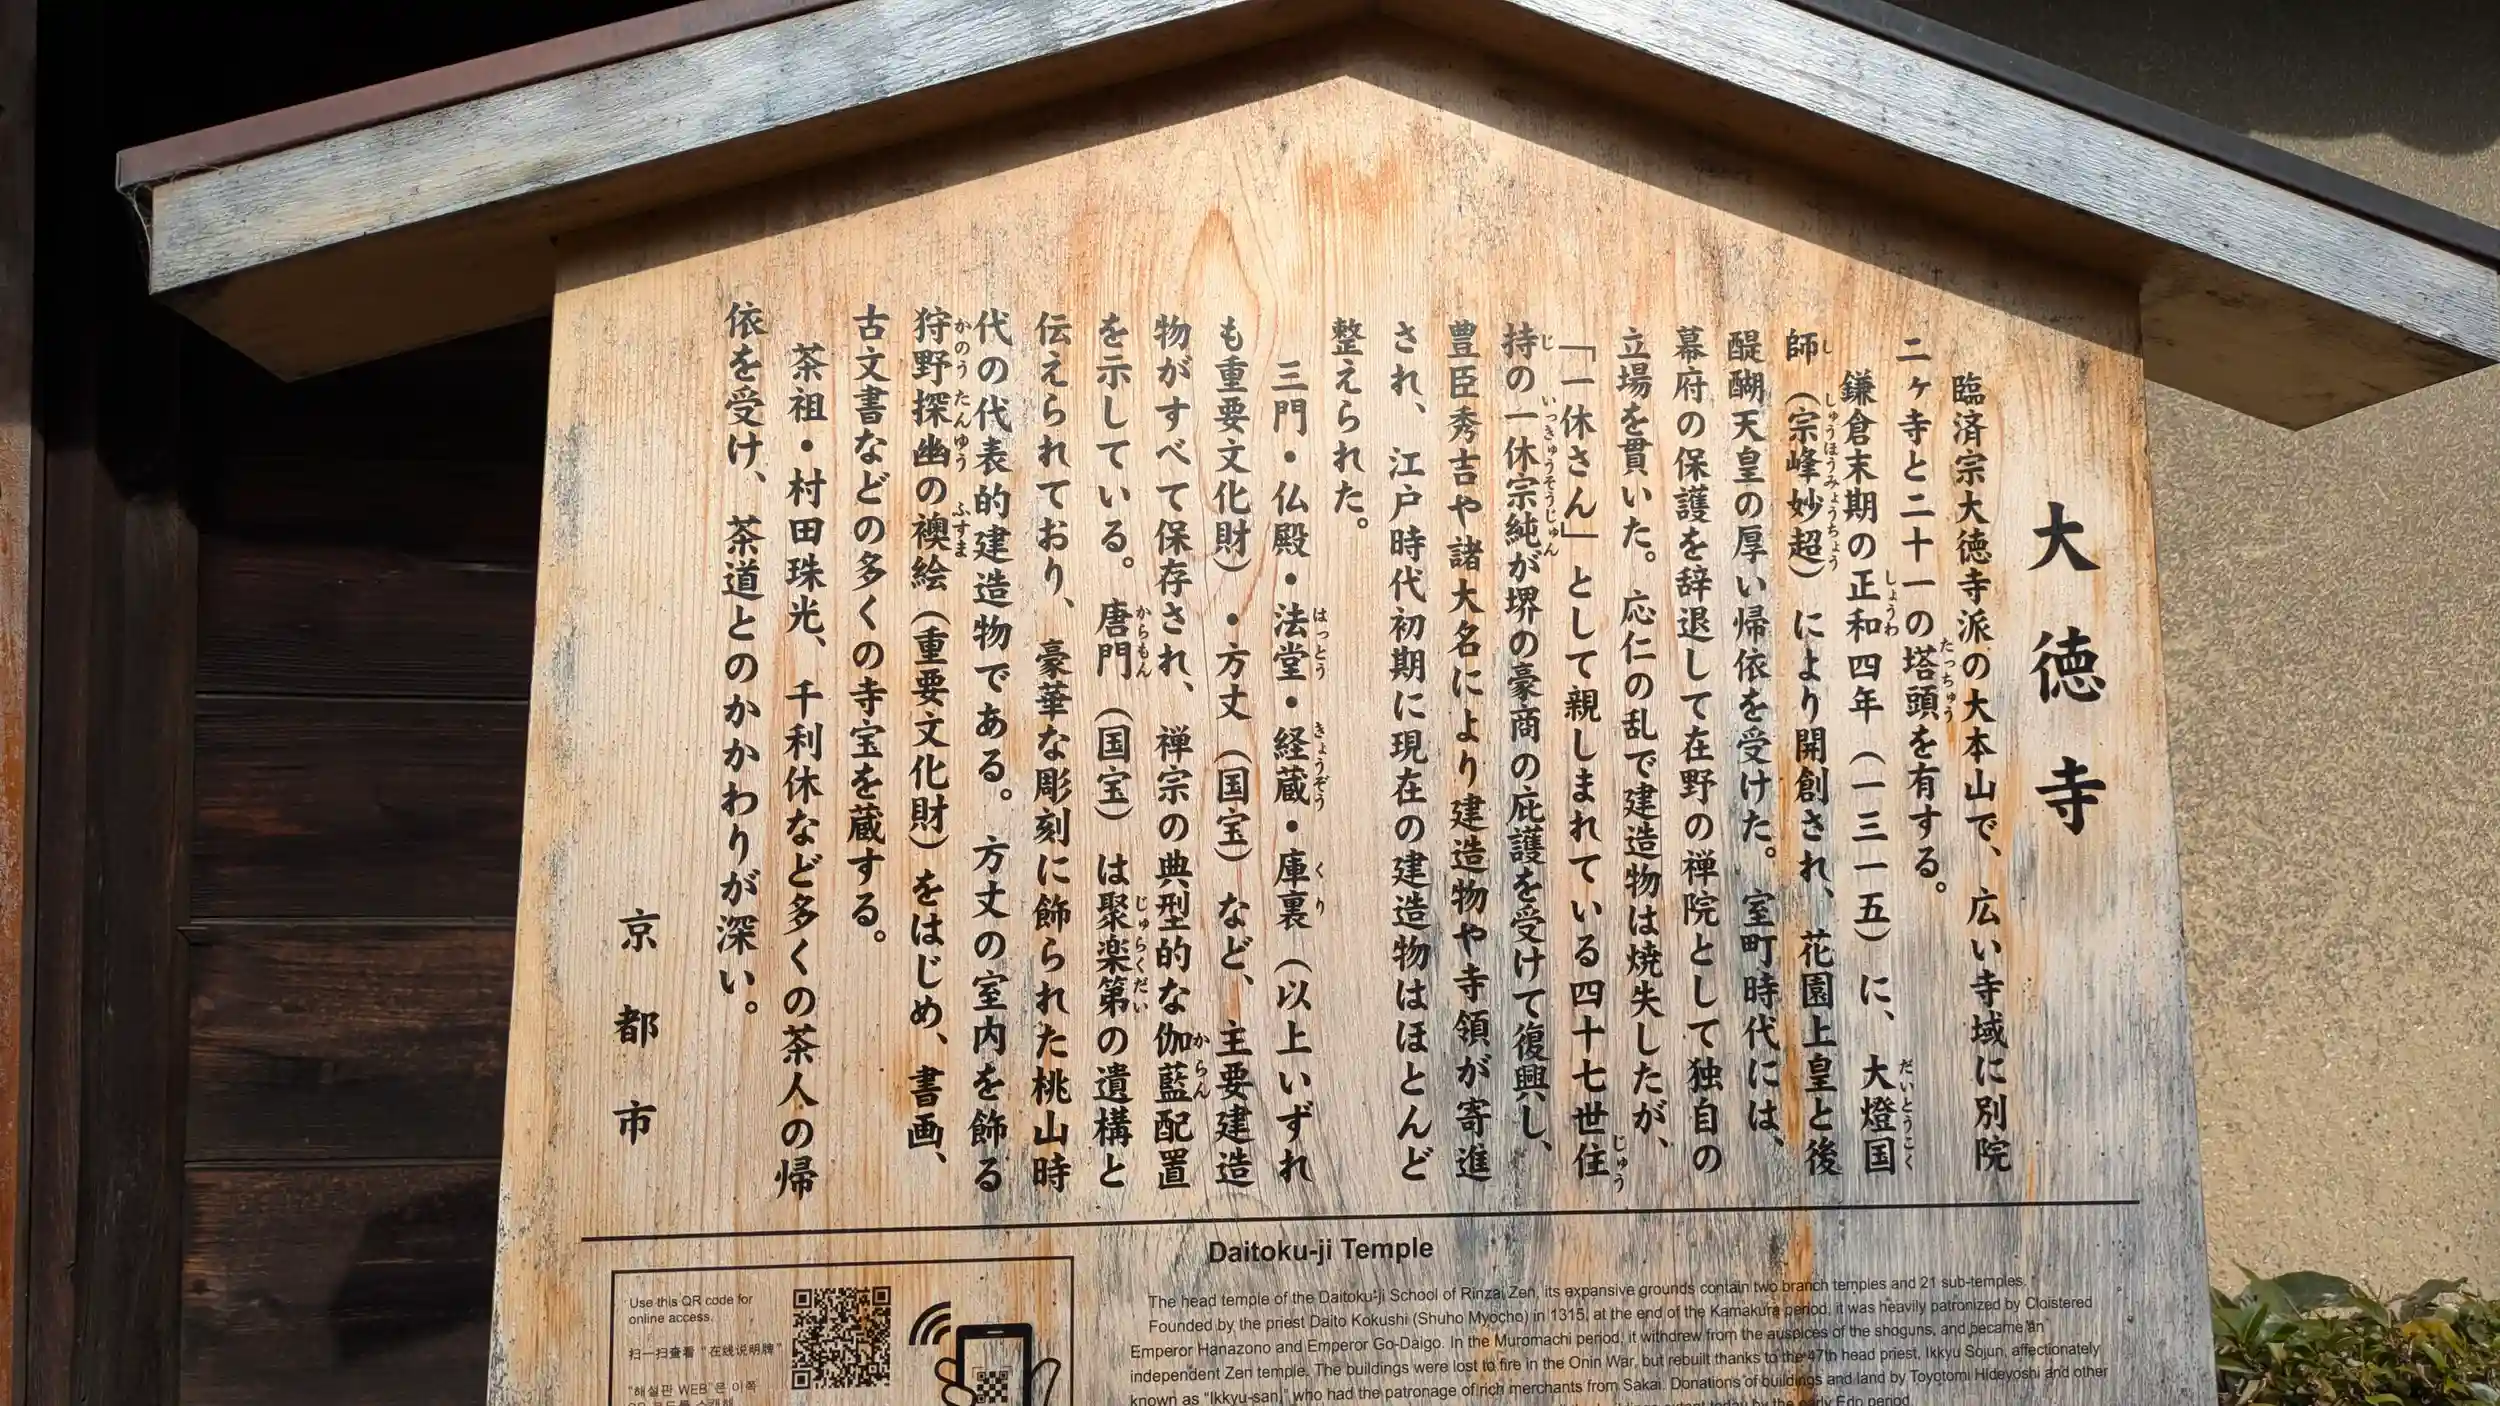 大徳寺
臨済宗大徳寺派の大本山で、広い寺域に別院
二ヶ寺と二十一の塔頭を有する。
たっちゅう
鎌倉末期の正和四年（一三一五）に、大燈国
しょうわ
だいとうこく
師（宗峰妙超）により開創され、花園上皇と後
し
しゅうほうみょうちょう
醍醐天皇の厚い帰依を受けた。室町時代には、
幕府の保護を辞退して在野の禅院として独自の
立場を貫いた。応仁の乱で建造物は焼失したが、
「一休さん」として親しまれている四十七世住
じゅう
持の一休宗純が堺の豪商の庇護を受けて復興し、
じ
いっきゅうそうじゅん
豊臣秀吉や諸大名により建造物や寺領が寄進
され、江戸時代初期に現在の建造物はほとんど
整えられた。
三門・仏殿・法堂・経蔵・庫裏（以上いずれ
はっとう
きょうぞう
くり
も重要文化財）・方丈（国宝）など、主要建造
物がすべて保存され、禅宗の典型的な伽藍配置
からん
を示している。唐門（国宝）は聚楽第の遺構と
からもん
じゅらくだい
伝えられており、豪華な彫刻に飾られた桃山時
代の代表的建造物である。方丈の室内を飾る
狩野探幽の襖絵（重要文化財）をはじめ、書画、
かのう たんゆう
ふすま
古文書などの多くの寺宝を蔵する。
茶祖・村田珠光、千利休など多くの茶人の帰
依を受け、茶道とのかかわりが深い。
京都市
Daitoku-ji Temple
The head temple of the Daitoku-ji School of Rinzai Zen, its expansive grounds contain two branch temples and 21 sub-temples.
Founded by the priest Daito Kokushi (Shuho Myocho) in 1315, at the end of the Kamakura period, it was heavily patronized by Cloistered
Emperor Hanazono and Emperor Go-Daigo. In the Muromachi period, it withdrew from the auspices of the shoguns, and became an
independent Zen temple. The buildings were lost to fire in the Onin War, but rebuilt thanks to the 47th head priest, Ikkyu Sojun, affectionately
known as "Ikkyu-san," who had the patronage of rich merchants from Sakai. Donations of buildings and land by Toyotomi Hideyoshi and other
today by the early Edo period.
Use this QR code for
online access.
扫一扫查看 "在线说明牌"
"해설판 WEB"은 이쪽